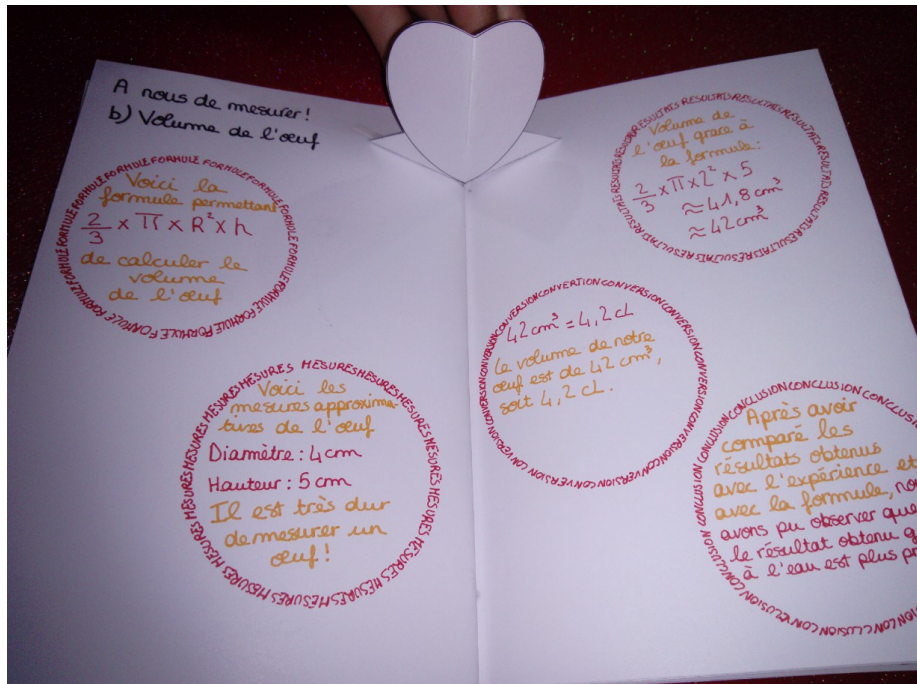 A nous de mesurer!
b) Volume de l'œuf
FORMULE FORMULE FORMULE FORMULE FORMULE FORMULE FORMULE FORMULE FORMULE FORMULE
Voici la
formule permettant
2/3 x π x R² x h
de calculer le
volume
de l'œuf
MESURES MESURES MESURES MESURES MESURES MESURES MESURES MESURES MESURES MESURES
Voici les
mesures approxima-
tives de l'œuf
Diamètre : 4 cm
Hauteur : 5 cm
Il est très dur
de mesurer un
œuf!
RESULTATS RESULTATS RESULTATS RESULTATS RESULTATS RESULTATS RESULTATS RESULTATS
Volume de
l'œuf grace à
la formule:
2/3 x π x 2² x 5
≈ 41,8 cm³
≈ 42 cm³
CONVERSION CONVERTION CONVERSION CONVERSION CONVERSION CONVERSION CONVERSION CONVERSION
42 cm³ = 4,2 cL
Le volume de notre
œuf est de 42 cm³,
soit 4,2 cL.
CONCLUSION CONCLUSION CONCLUSION CONCLUSION CONCLUSION CONCLUSION
Après avoir
comparé les
résultats obtenus
avec l'expérience et
avec la formule,
avons pu observer que
le résultat obtenu
à l'eau est plus